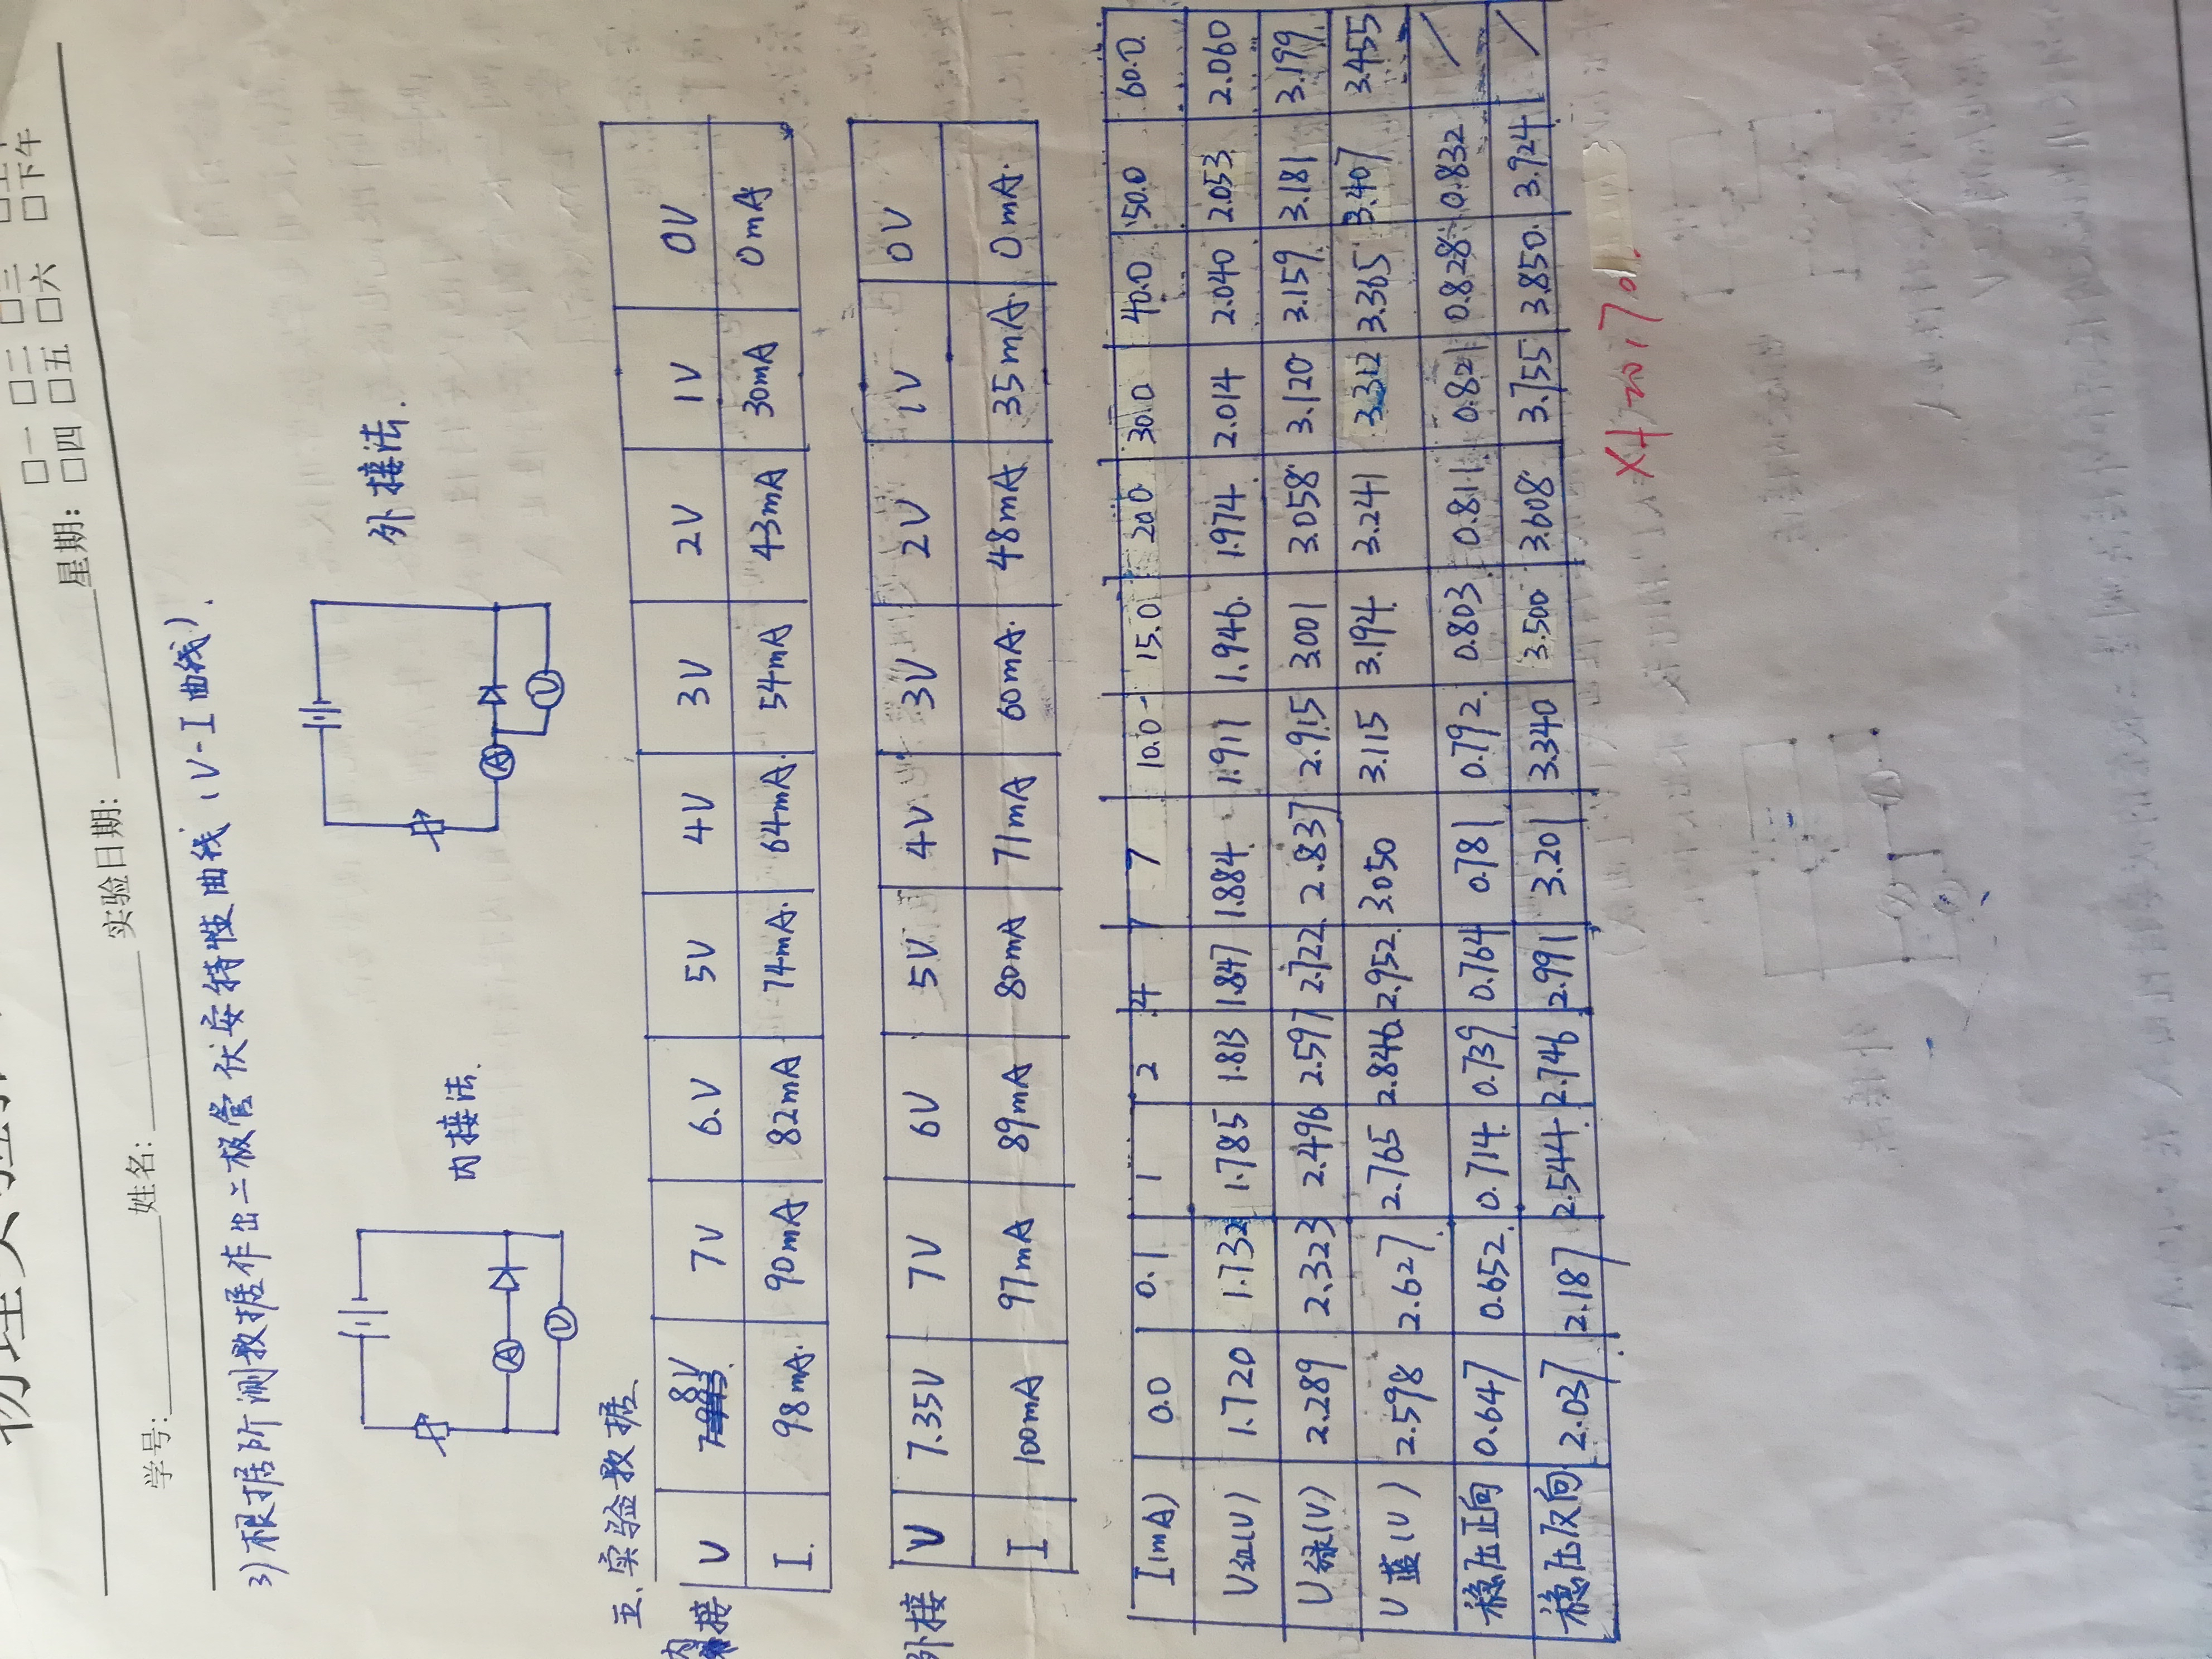 物理实验
星期: □一 □二 □三 □上午
□四 □五 □六 □下午
学号: 姓名: 实验日期:
3) 根据所测数据作出二极管伏安特性曲线 (V-I曲线).
内接法.
外接法.
A
V
A
V
五. 实验数据.
内接 U 8V 7V 6.V 5V 4V 3V 2V 1V 0V
I. 98mA. 90mA 82mA 74mA. 64mA. 54mA 43mA 30mA 0mA
外接 U 7.35V 7V 6V 5V 4V 3V 2V 1V 0V
I 100mA 97mA 89mA 80mA 71mA 60mA. 48mA 35mA. 0mA.
I(mA) 0.0 0.1 1 2 4 7 10.0 15.0 20.0 30.0 40.0 50.0 60.0
U红(V) 1.720 1.732 1.785 1.813 1.847 1.884 1.911 1.946 1.974 2.014 2.040 2.053 2.060
U绿(V) 2.289 2.323 2.496 2.597 2.722 2.837 2.915 3.001 3.058 3.120 3.159 3.181 3.199
U蓝(V) 2.598 2.627 2.765 2.846 2.952 3.050 3.115 3.194 3.241 3.312 3.365 3.407 3.455
稳压正向 0.647 0.652 0.714 0.739 0.764 0.781 0.792 0.803 0.811 0.821 0.828 0.832 /
稳压反向 2.037 2.187 2.544 2.746 2.991 3.201 3.340 3.500 3.608 3.755 3.850 3.924 /